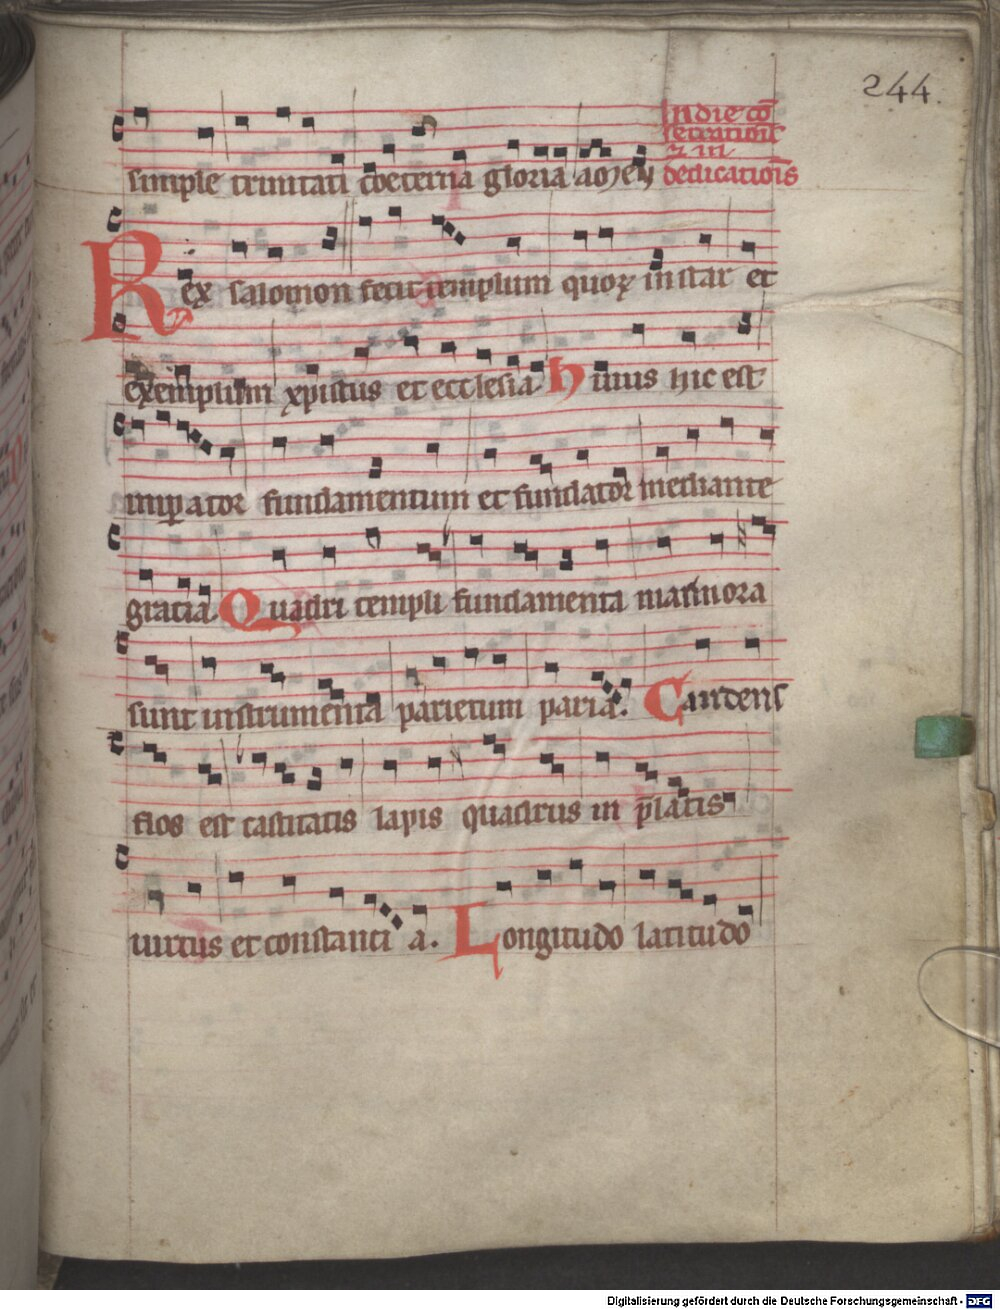 244.
In die cō
secrationis
⁊ in
dedicatiōis
simple trinitati coeterna gloria amen
Rex salomon fecit templum quoꝝ instar et
exemplum xpistus et ecclesia Huius hic est
imꝑator fundamentum et fundator mediante
gracia Quadri templi fundamenta marmora
sunt instrumenta parietum paria. Candens
flos est castitatis lapis quadrus in p̄latis
uirtus et constanti a. Longitudo latitudo
Digitalisierung gefördert durch die Deutsche Forschungsgemeinschaft - DFG